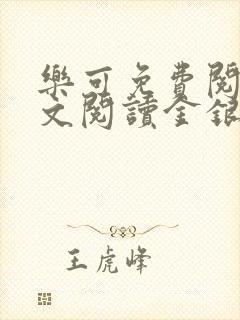 樂可免費閱
文閱讀金銀
王虎峰